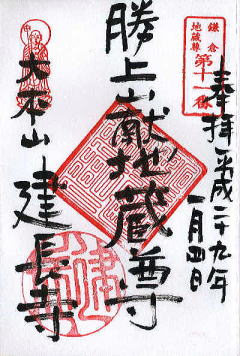 鎌倉
地蔵尊
第十一番
奉拝 平成二十九年
一月四日
勝上嶽地蔵尊
大本山 建長寺